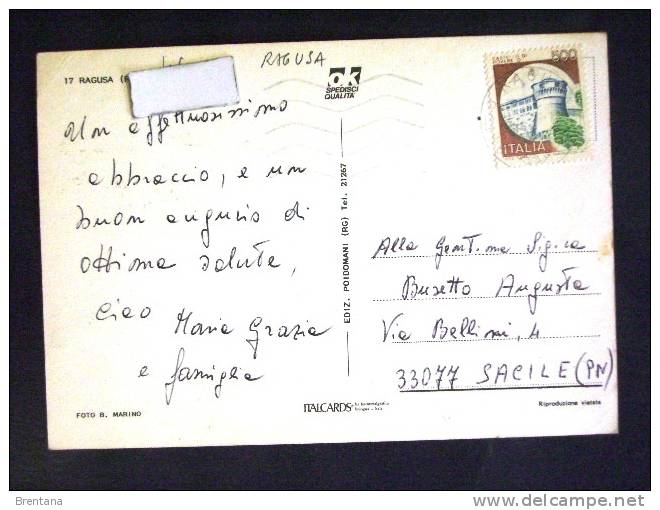 17 RAGUSA
RAGUSA
ok
SPEDISCI
QUALITÀ
500
ITALIA
Un affettuosissimo
abbraccio, e un
buon augurio di
ottima salute,
ciao Maria Grazia
e famiglia
EDIZ. POIDOMANI (RG) Tel. 21267
Alla Gent.ma Sig.ra
Busetto Augusta
Via Bellini, 4
33077 SACILE (PN)
FOTO B. MARINO
ITALCARDS
Riproduzione vietata
Brentana
delcampe.net